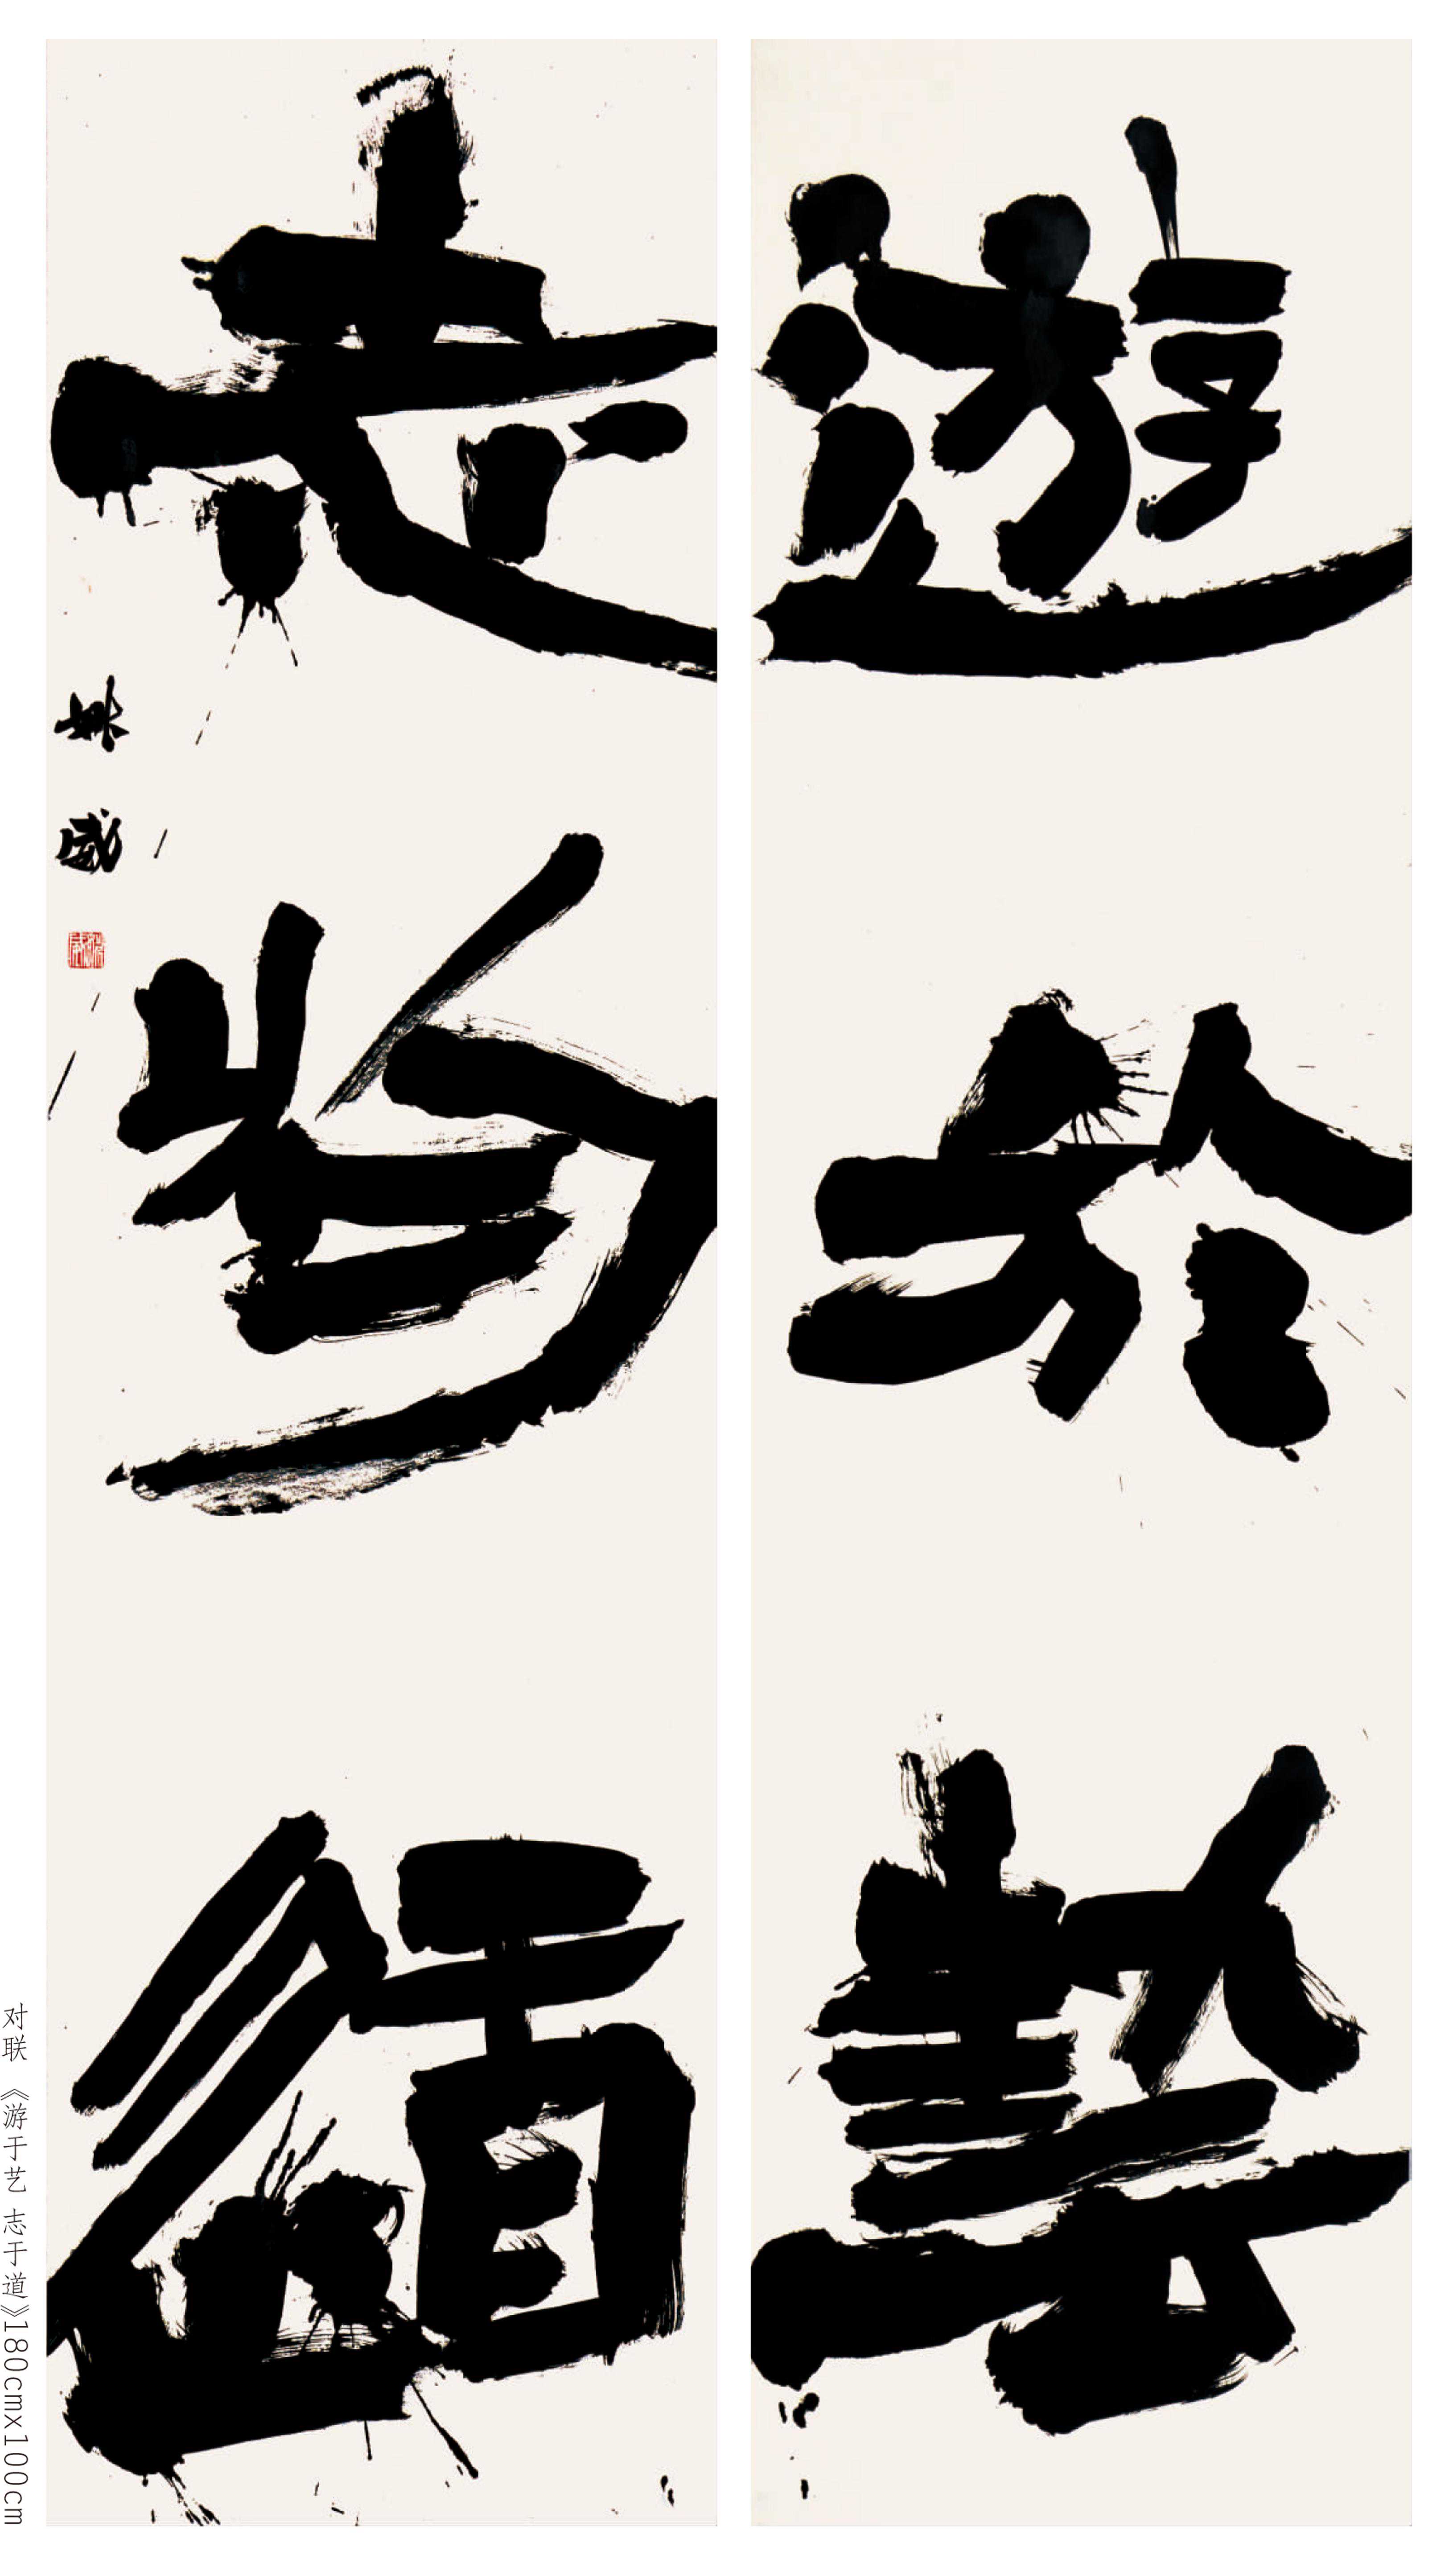 遊於藝
志於道
姚
对联《游于艺 志于道》180cmx100cm